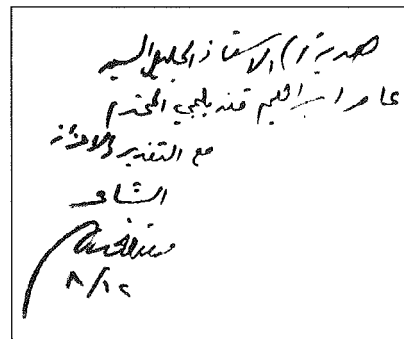 هدية إلى الاستاذ الجليل السيد
عامر ابراهيم قنديلجي المحترم
مع التقدير والاعتزاز
الشاعر
٨/١٢